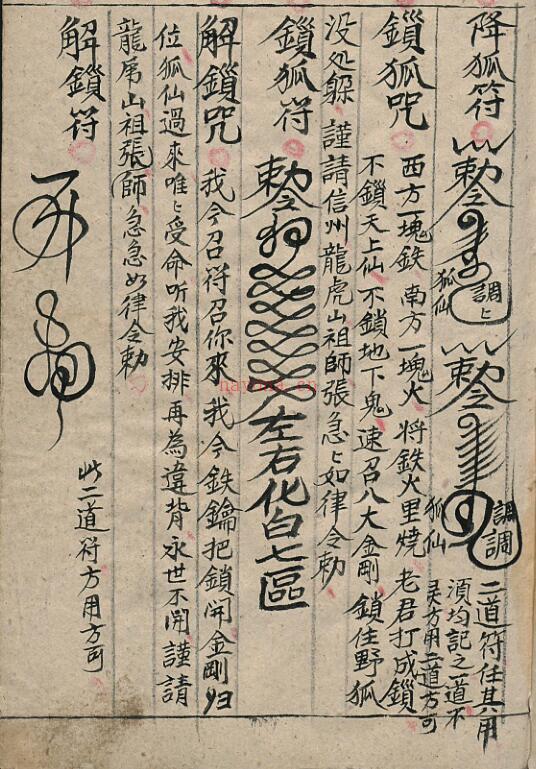 降狐符
勅令
狐仙
調
勅令
狐仙
調
二道符任其用
須均記之一道不
灵方用二道方可
鎖狐咒
西方一塊鉄 南方一塊火 将鉄火里燒 老君打成鎖
不鎖天上仙 不鎖地下鬼 速召八大金剛 鎖住野狐
没処躲 謹請信州龍虎山祖師張急〻如律令勅
鎖狐符
勅令
左右化白七區
解鎖咒
我今召符召你來 我今鉄鑰把鎖開 金剛归
位狐仙過來唯〻受命听我安排再為違背永世不開謹請
龍虎山祖張師急急如律令勅
解鎖符
此二道符方用方可